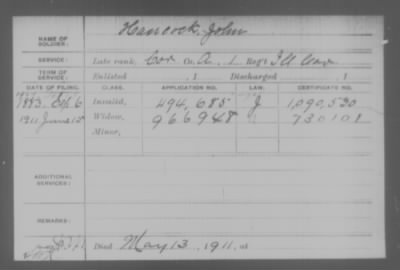 NAME OF SOLDIER: Hancock, John
SERVICE: Late rank, Cor Co. A, 1 Reg't Ill Cav
TERM OF SERVICE: Enlisted , 1 Discharged , 1
DATE OF FILING. CLASS. APPLICATION NO. LAW. CERTIFICATE NO.
1883, 6 Invalid, 494,685 J 1,090,530
1911 June 15 Widow, 966948 730101
Minor,
ADDITIONAL SERVICES:
REMARKS:
Died May 13, 1911, at